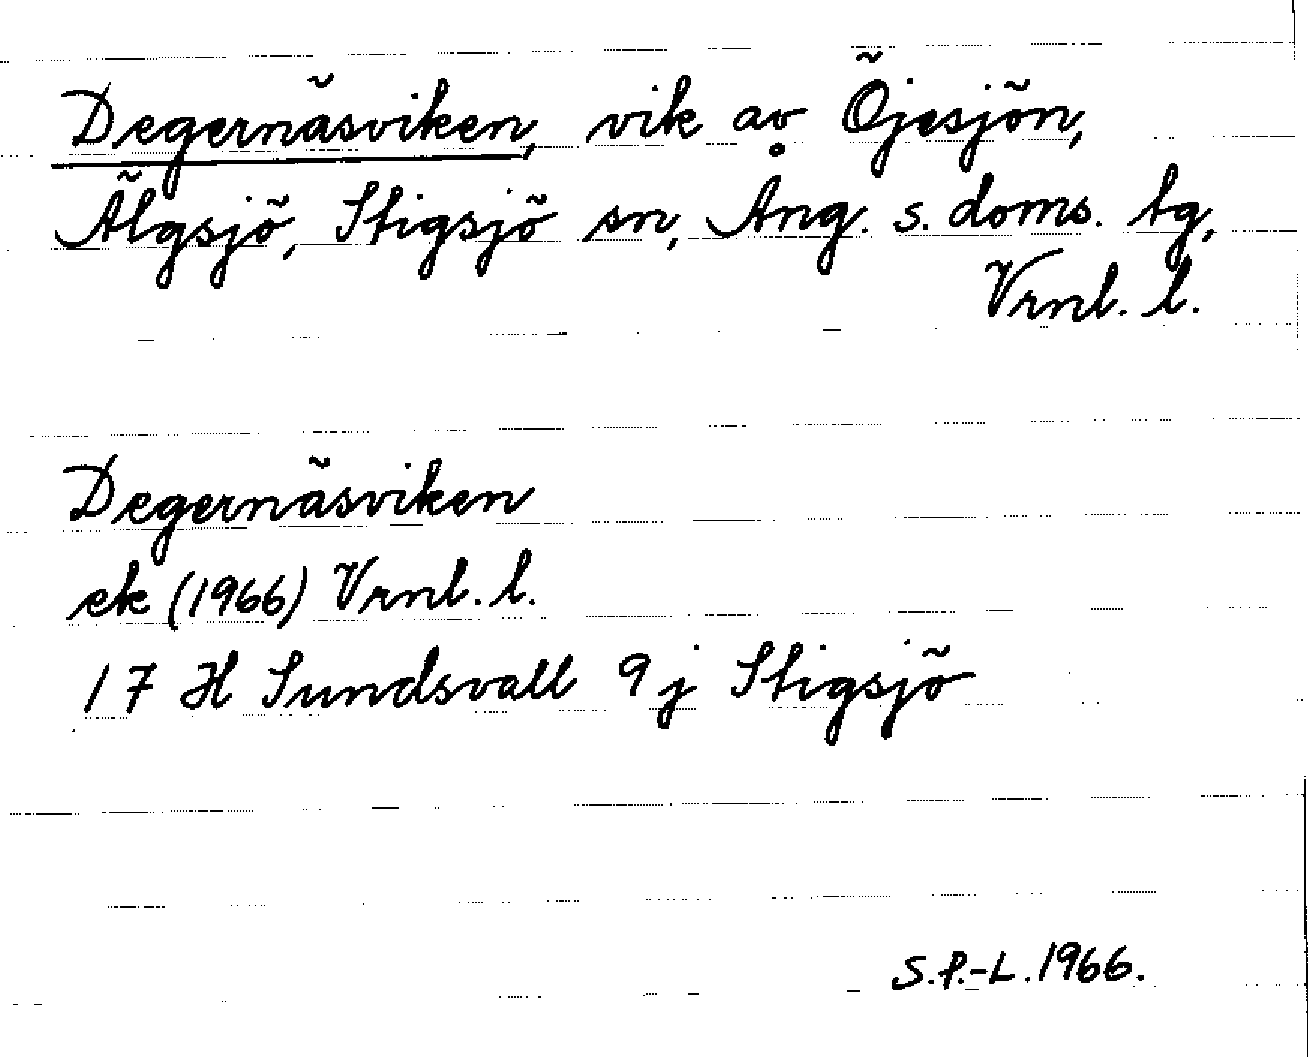 Degernäsviken, vik av Öjesjön,
Älgsjö, Stigsjö sn, Ång. s. doms. tg,
Vrnl. l.
Degernäsviken
ek (1966) Vrnl. l.
17 H Sundsvall 9 j Stigsjö
S.P.-L. 1966.